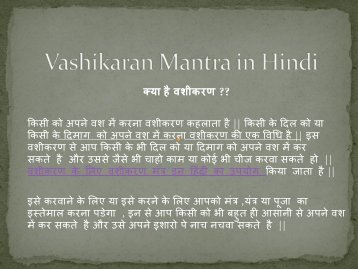 Vashikaran Mantra in Hindi
क्या है वशीकरण ??
किसी को अपने वश में करना वशीकरण कहलाता है || किसी के दिल को या
किसी के दिमाग को अपने वश में करना वशीकरण की एक विधि है || इस
वशीकरण से आप किसी के भी दिल को या दिमाग को अपने वश में कर
सकते है और उससे जैसे भी चाहो काम या कोई भी चीज करवा सकते हो ||
वशीकरण के लिए वशीकरण मंत्र इन हिंदी का उपयोग किया जाता है ||
इसे करवाने के लिए या इसे करने के लिए आपको मंत्र ,यंत्र या पूजा का
इस्तेमाल करना पड़ेगा , इन से आप किसी को भी बहुत ही आसानी से अपने वश
में कर सकते है और उसे अपने इशारो पे नाच नचवा सकते है ||